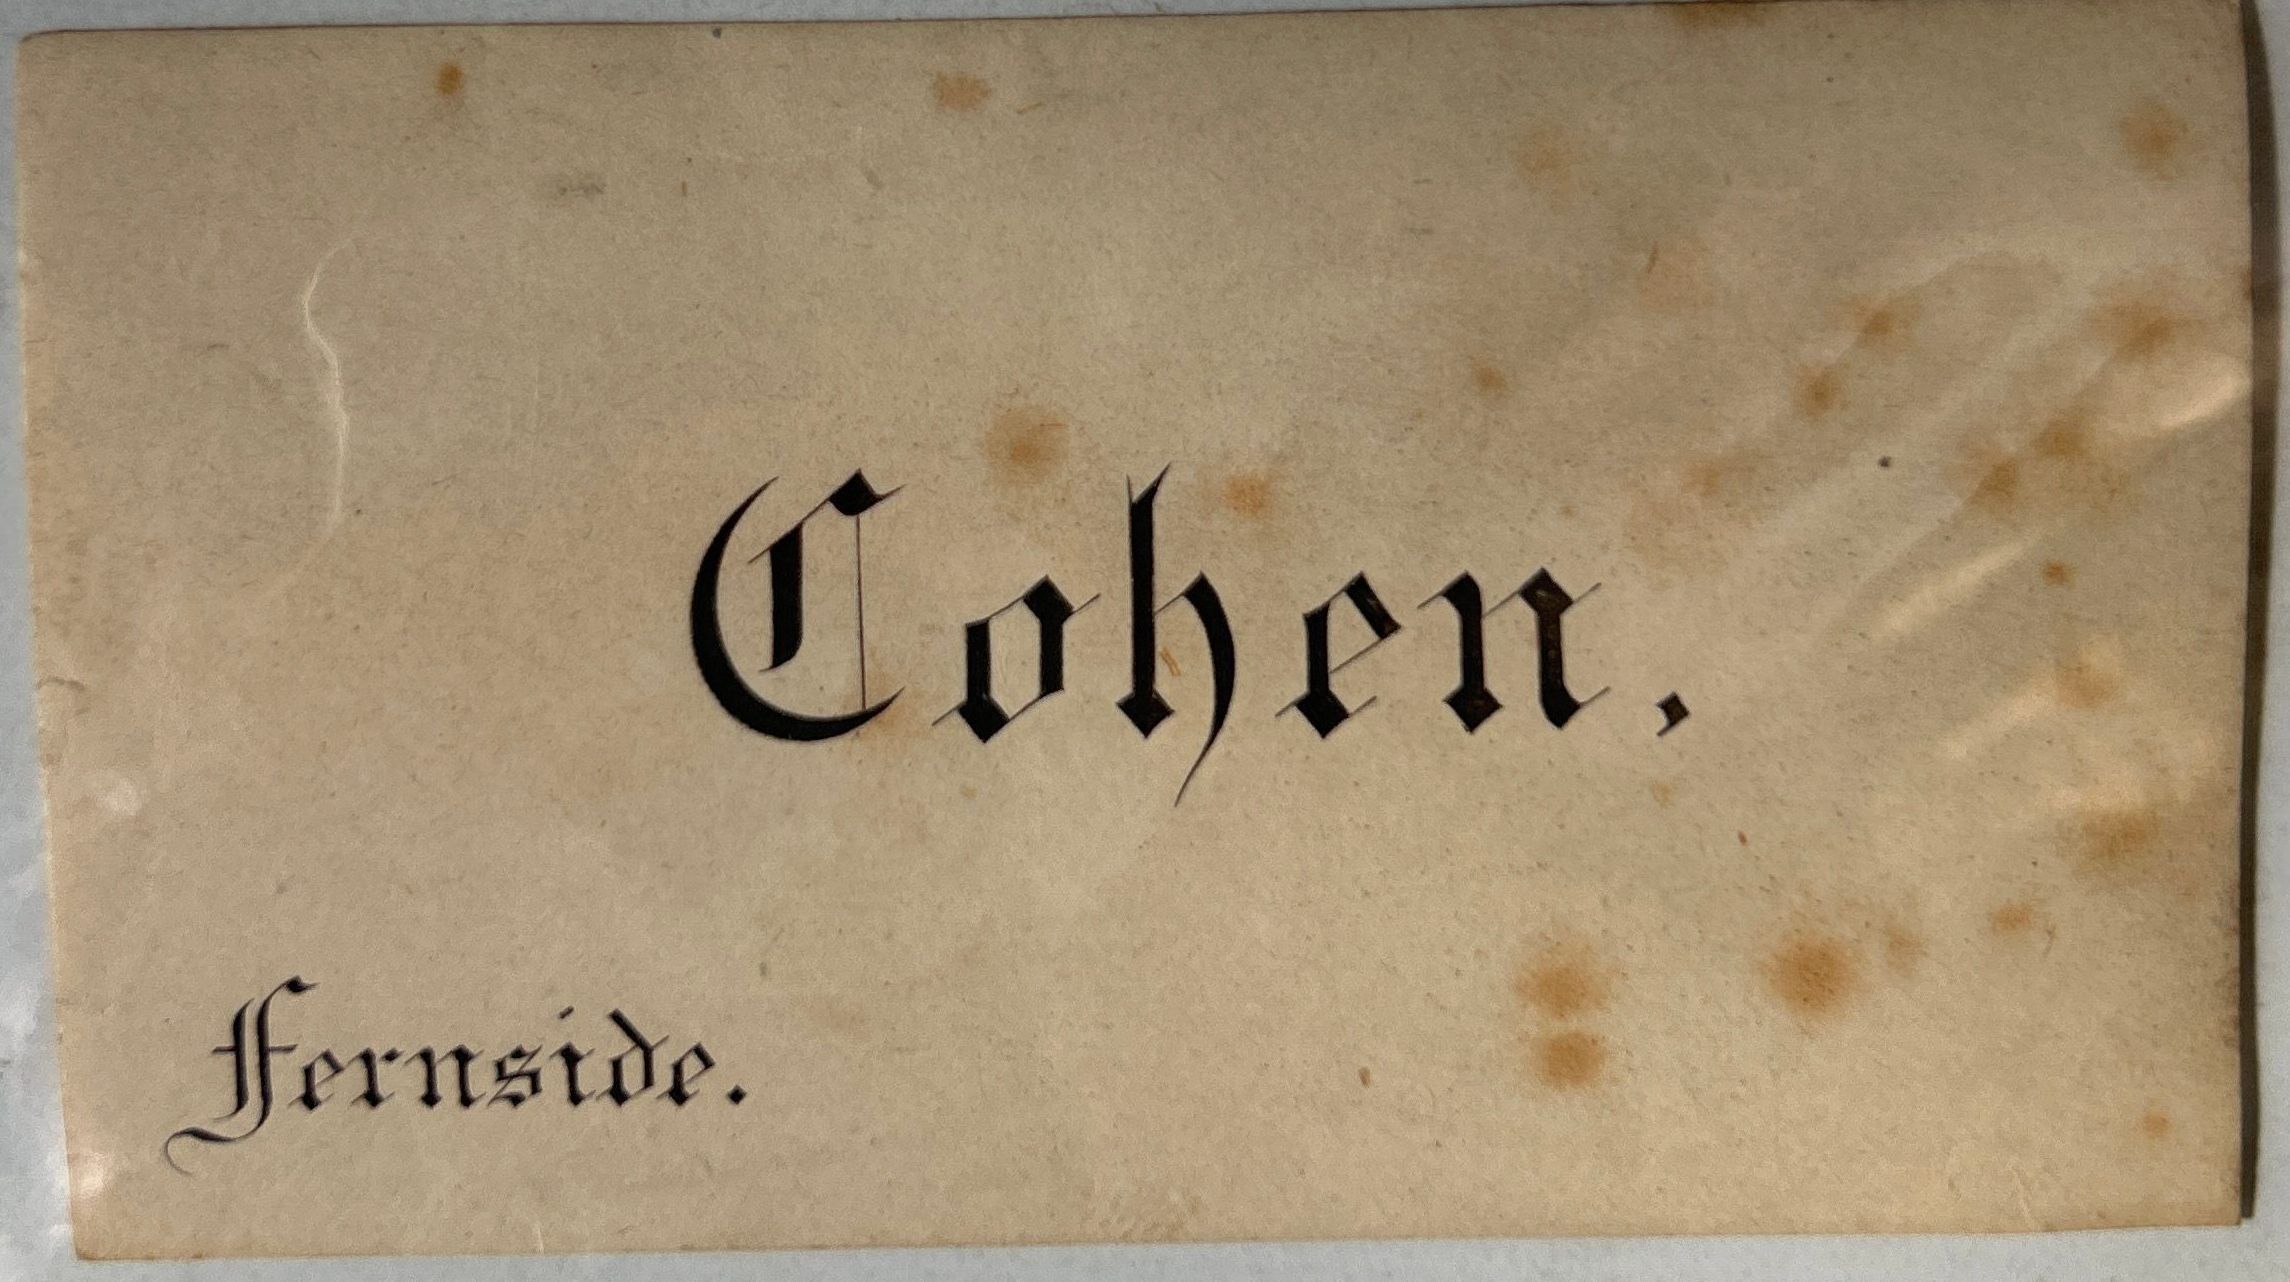 Cohen.
Fernside.